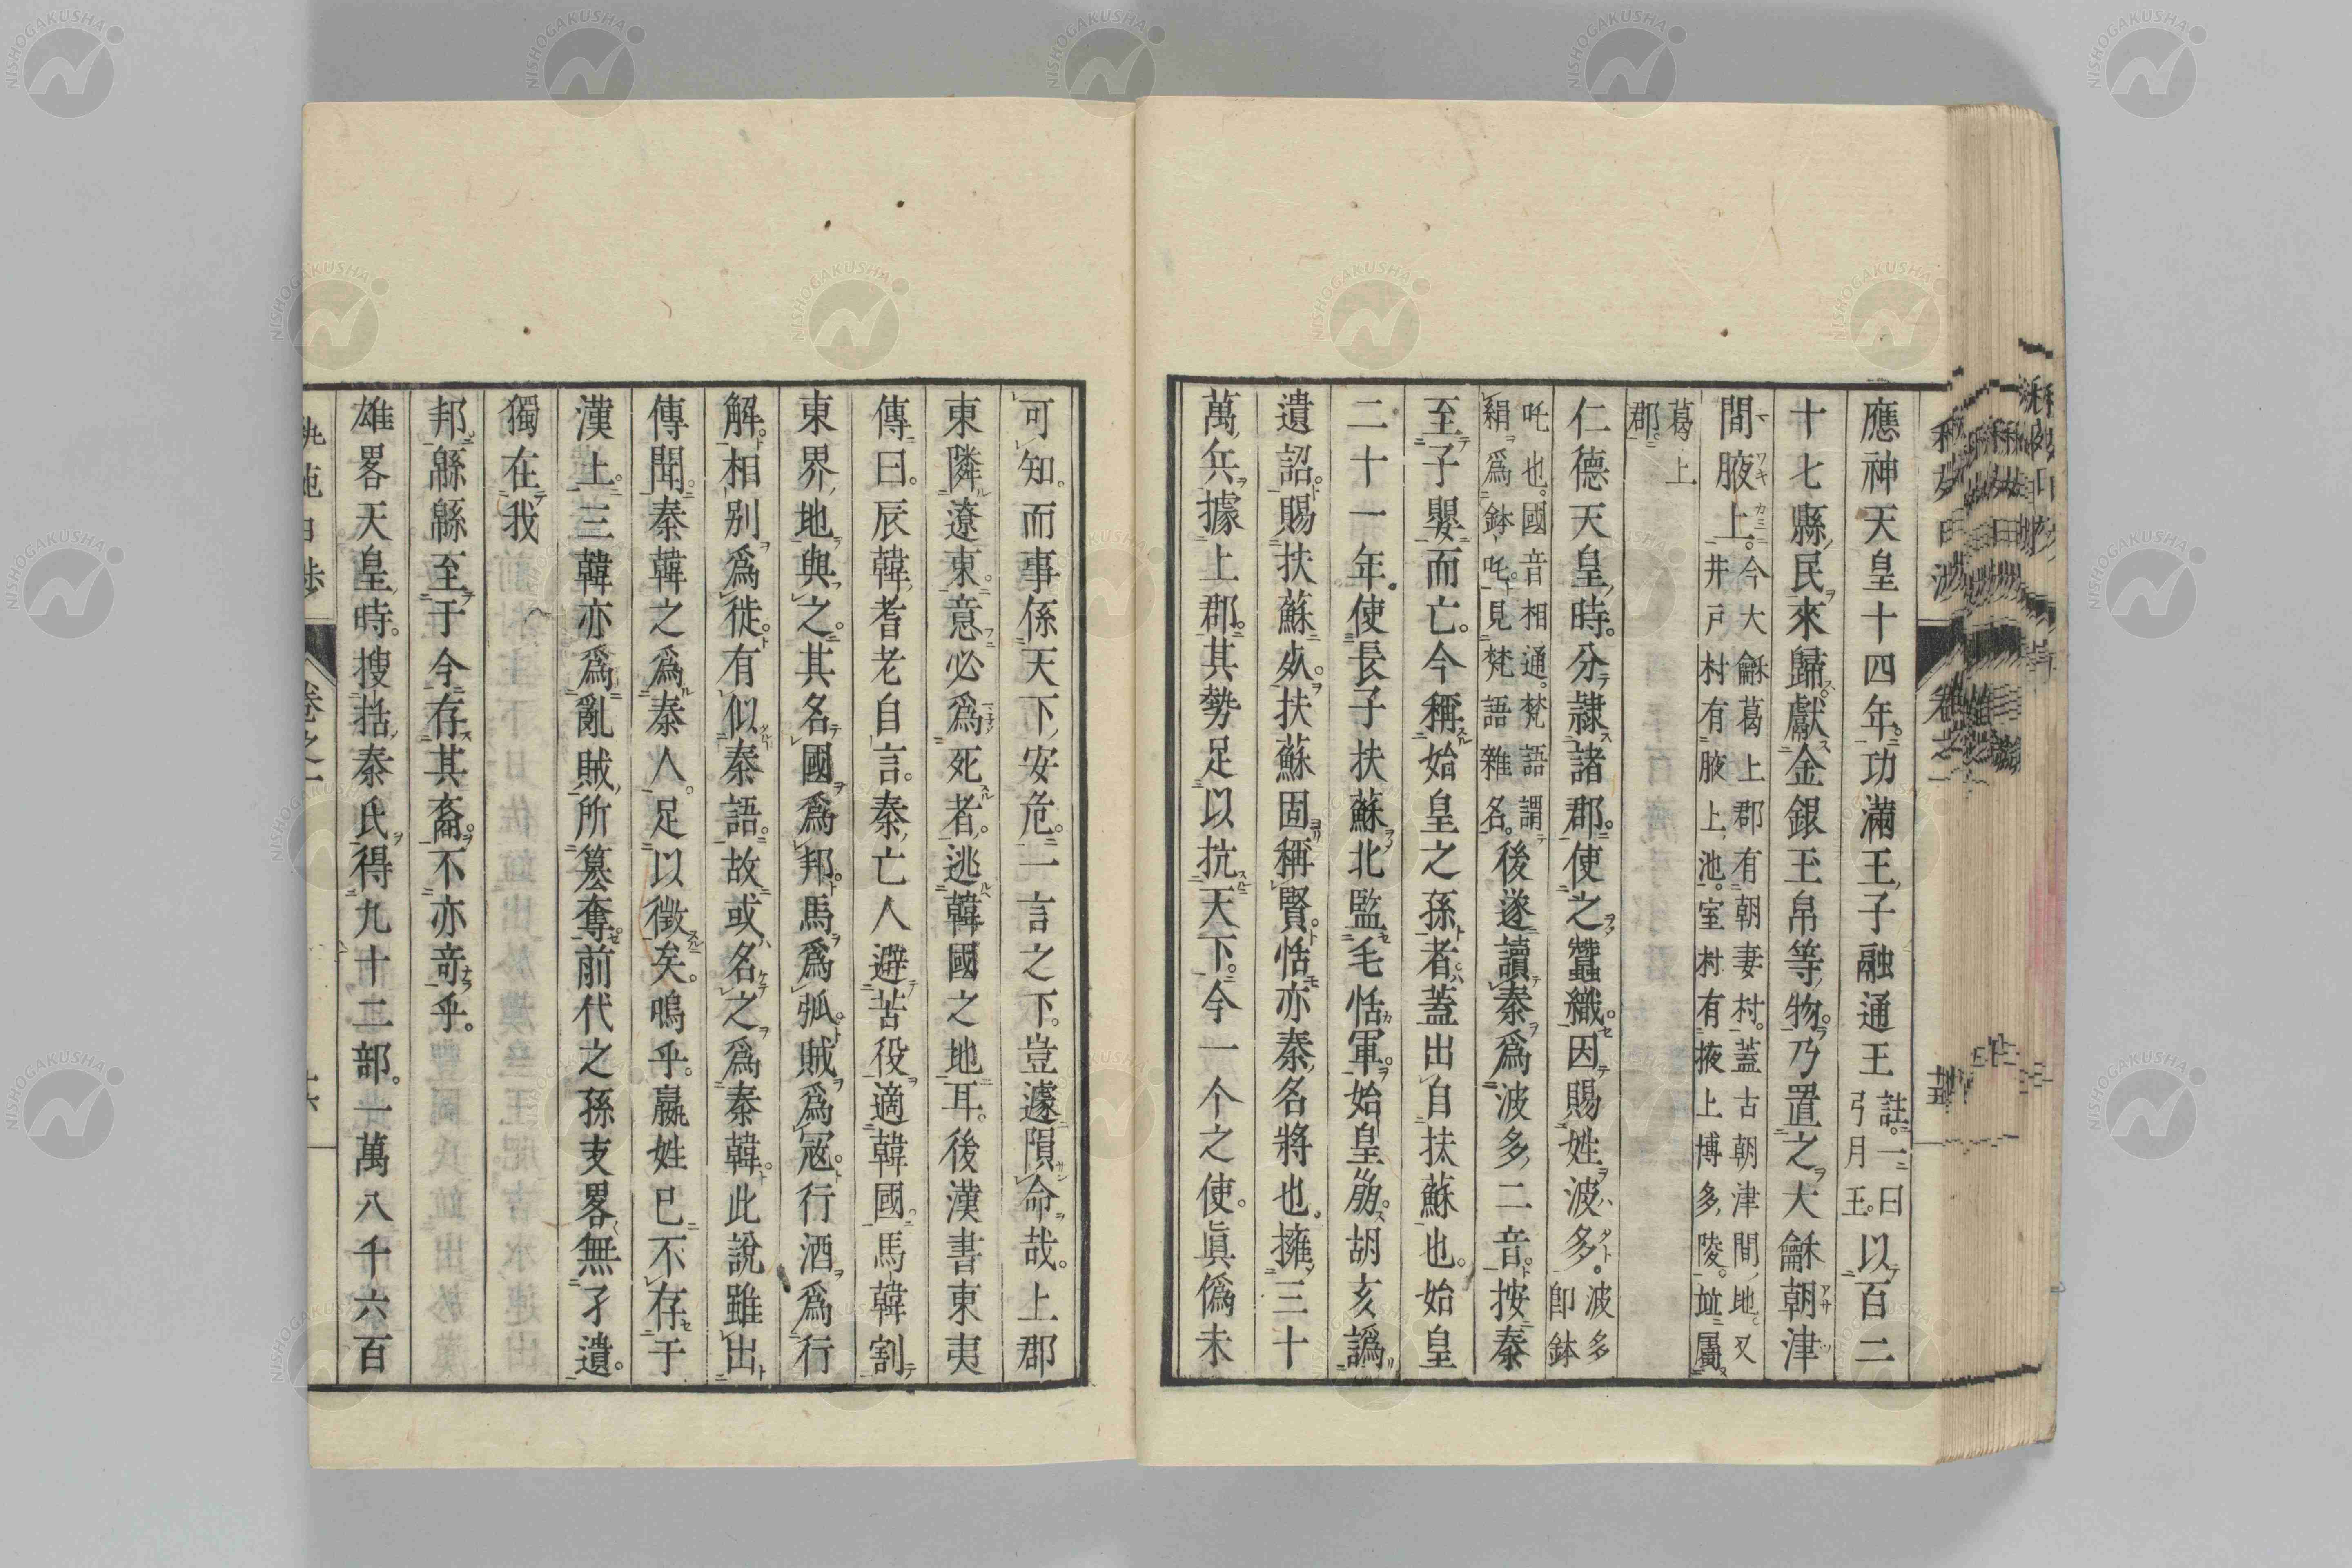 應神天皇十四年。功滿王子融通王註。一曰弓月王。以百二
十七縣民來歸。獻金銀玉帛等物。乃置之大龢朝津
間腋上。今大龢葛上郡有朝妻村。蓋古朝津間地。又井戸村有腋上池。室村有掖上博多陵。竝屬
葛上郡。
仁德天皇時。分隷諸郡。使之蠶織。因賜姓波多。波多卽鉢
吒也。國音相通。梵語謂絹爲鉢吒。見梵語雜名。後遂讀秦爲波多二音。按秦
至子嬰而亡。今稱始皇之孫者。蓋出自扶蘇也。始皇
二十一年。使長子扶蘇北監毛恬軍。始皇崩。胡亥譌
遺詔。賜扶蘇死。扶蘇固稱賢。恬亦秦名將也。擁三十
萬兵據上郡。其勢足以抗天下。今一个之使。眞僞未
可知。而事係天下安危。一言之下。豈遽隕命哉。上郡
東隣遼東。意必爲死者。逃韓國之地耳。後漢書東夷
傳曰。辰韓耆老自言。秦亡人避苦役適韓國。馬韓割
東界地與之。其名國爲邦。馬爲弧。賊爲寇。行酒爲行
解。相別爲徙。有似秦語。故或名之爲秦韓。此說雖出
傳聞。秦韓之爲秦人。足以徵矣。嗚乎。嬴姓已不存于
漢土。三韓亦爲亂賊所簒奪。前代之孫支畧無孑遺。
獨在我
邦緜緜至于今存其裔。不亦奇乎。
雄畧天皇時。搜括秦氏。得九十二部。一萬八千六百